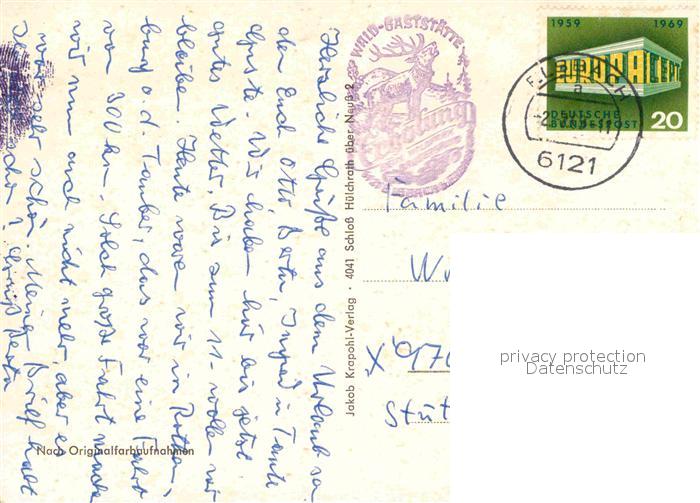 Herzliche Grüße aus dem Urlaub sendet
der Euch Otto, Berta, Ingrid u. Tante
Guste. Wir haben hier bis jetzt
gutes Wetter. Bis zum 11. wollen wir
bleiben. Heute waren wir in Rothen-
burg o. d. Tauber, das war eine Fahrt
von 300 km. Solch große Fahrt machen
wir nun auch nicht mehr, aber es
war sehr schön. Meinen Brief habt
Ihr doch? Gruß Berta
Nach Originalfarbaufnahmen
Jakob Krapohl-Verlag · 4041 Schloß Hülchrath über Neuß 2
WALD-GASTSTÄTTE
1959 1969
EUROPA CEPT
DEUTSCHE
BUNDESPOST 20
a
6121
Familie
W
X 970
Stüt
privacy protection
Datenschutz